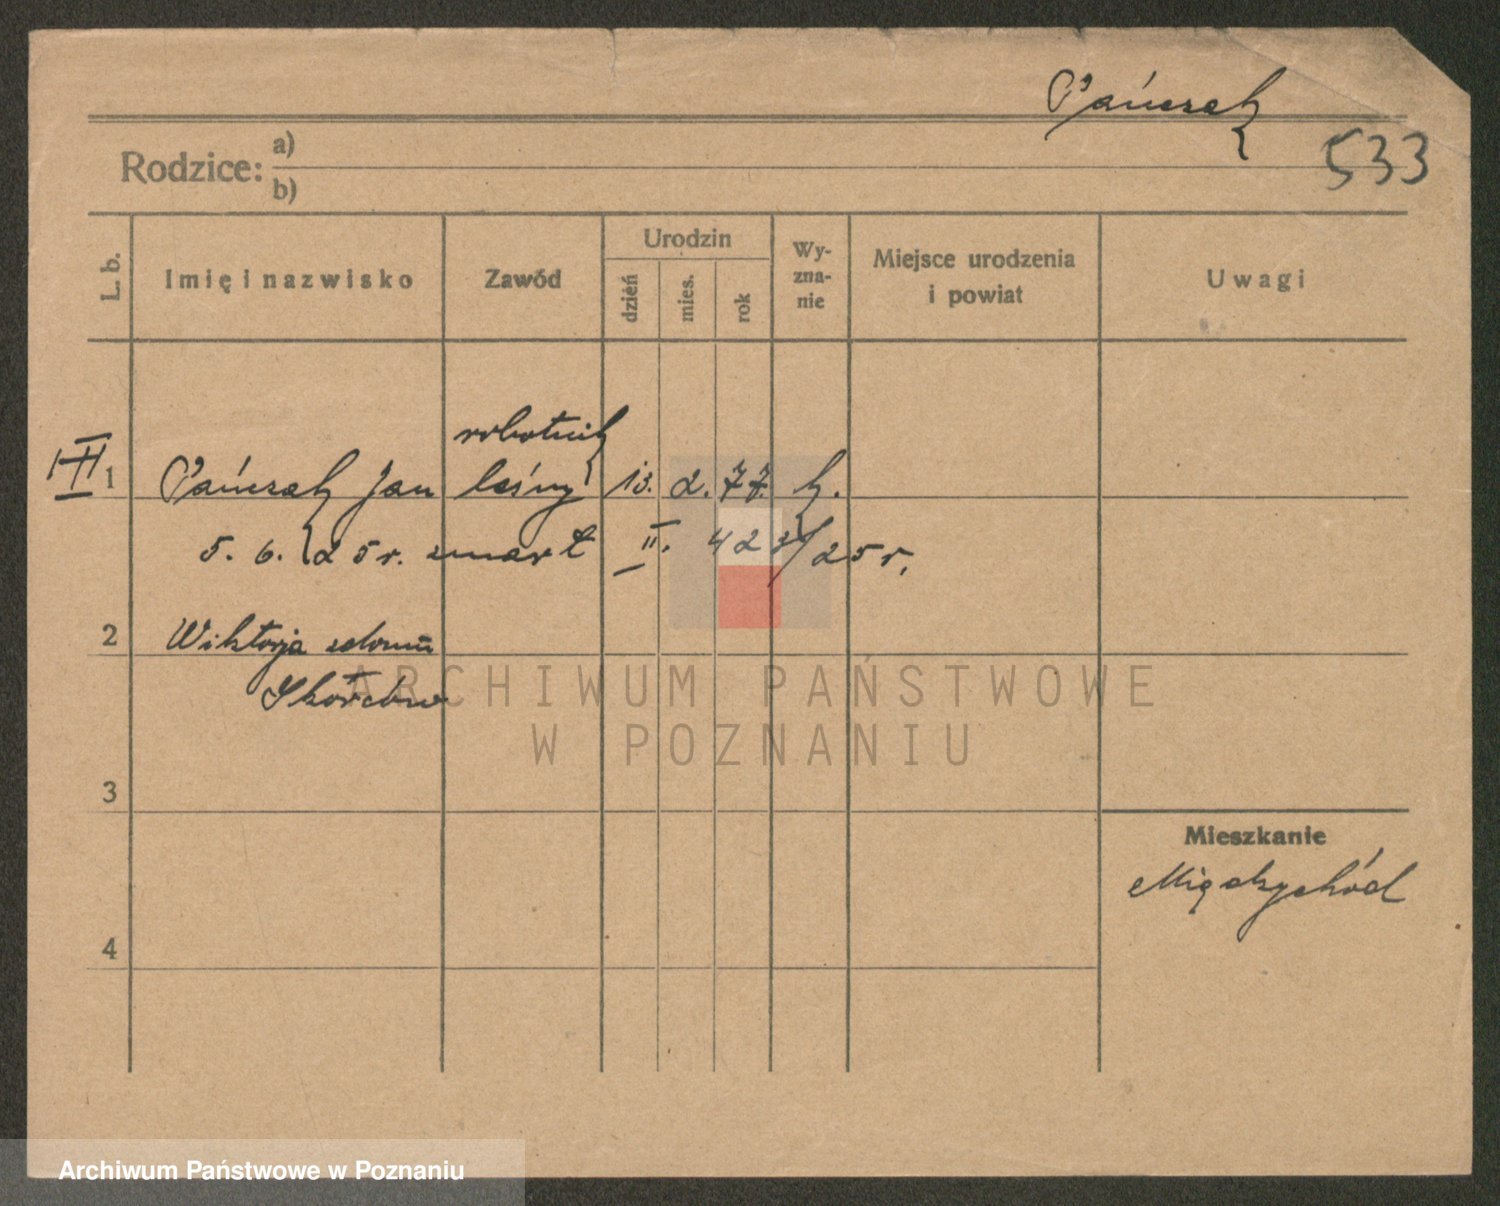 Pańczak
533
Rodzice: a)
b)
L. b.
Imię i nazwisko
Zawód
Urodzin
dzień
mies.
rok
Wy-
zna-
nie
Miejsce urodzenia
i powiat
Uwagi
robotnik
III 1 Pańczak Jan leśny 13. 2. 77. k.
5. 6. 25 r. zmarł II. 42 /25 r.
2 Wiktorja z domu
ARCHIWUM PAŃSTWOWE
W POZNANIU
3
Mieszkanie
Międzychód
4
Archiwum Państwowe w Poznaniu